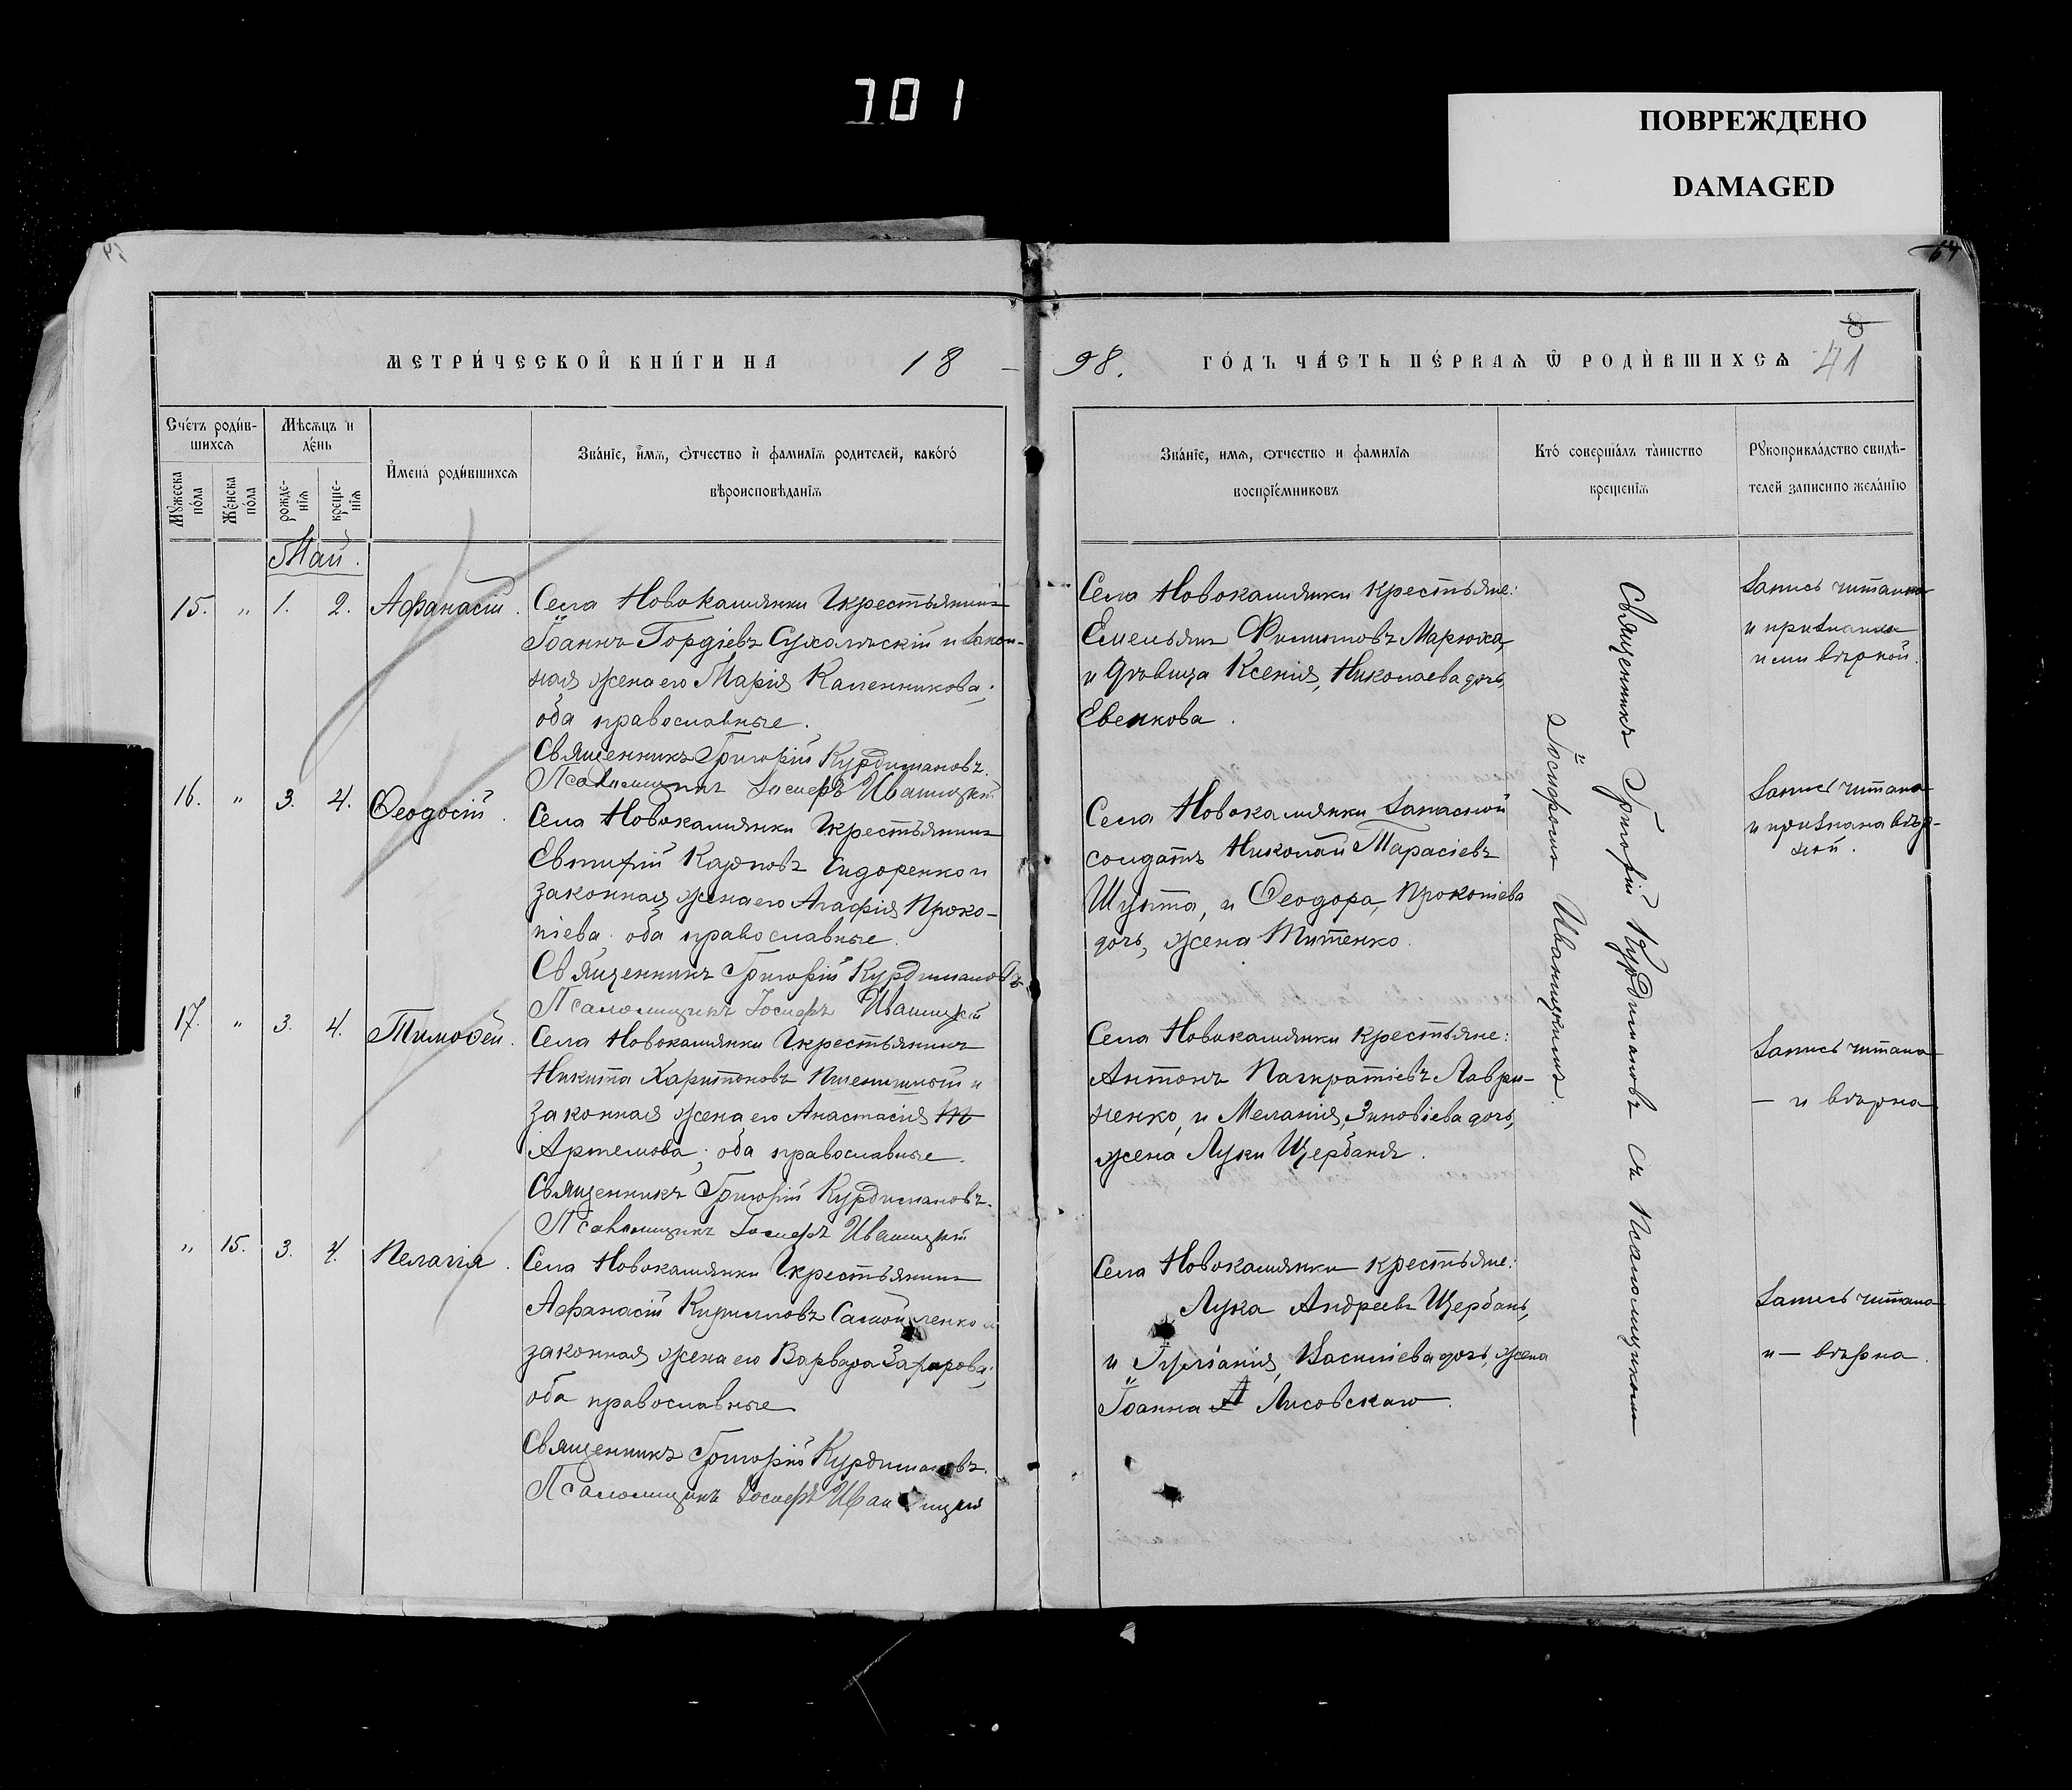 701
ПОВРЕЖДЕНО
DAMAGED
МЕТРИ́ЧЕСКОЙ КНИ́ГИ НА 18
98. ГО́ДЪ ЧА́СТЬ ПЕ́РВАѦ Ѿ РОДИ́ВШИХСѦ 41
Сче́тъ роди́в-
шихсѧ
Мѣсѧцъ и
де́нь
И҆мена́ роди́вшихсѧ
Зва́нїе, и҆́мѧ, ѻ҆́тчество и҆ фамилїѧ родителей, како́гѡ
вѣроисповѣданїѧ
Мꙋжеска
по́ла
Же́нска
по́ла
рожде-
нїѧ
креще-
нїѧ
Зва́нїе, имѧ, ѻтчество и фамилїѧ
воспрїе́мниковъ
Кто́ соверша́лъ та́инство
крещенїѧ
Рꙋкоприкла́дство свидѣ-
телей записи по жела́нїю
Май.
15. " 1. 2. Афанасій.
Села Новокамянки крестьянинъ
Іоаннъ Гордіевъ Сухольскій и закон-
ная жена его Марія Каленникова;
оба православные.
Священникъ Григорій Курдимановъ.
Псаломщикъ Іосифъ Иваницкій
Села Новокамянки крестьяне:
Емельянъ Филиповъ Марюха,
и дѣвица Ксенія, Николаева дочь,
Евенкова.
Запись читана
и признана
ими вѣрной.
16. " 3. 4. Ѳеодосій.
Села Новокамянки крестьянинъ
Евтифій Карповъ Сидоренко и
законная жена его Агафія Проко-
піева оба православные.
Священникъ Григорій Курдимановъ
Псаломщикъ Іосифъ Иваницкій
Села Новокамянки запасной
солдатъ Николай Тарасіевъ
Шупта, и Ѳеодора, Прокопіева
дочь, жена Титенко.
Запись читана
и признана вѣр-
ной.
17. " 3. 4. Тимоѳей.
Села Новокамянки крестьянинъ
Никита Харитоновъ Пшеничный и
законная жена его Анастасія
Артемова; оба православные.
Священникъ Григорій Курдимановъ.
Псаломщикъ Іосифъ Иваницкій
Села Новокамянки крестьяне:
Антонъ Панкратіевъ Лаври-
ненко, и Меланія, Зиновіева дочь,
жена Луки Щербаня.
Запись читана
— и вѣрна
" 15. 3. 4. Пелагія.
Села Новокамянки крестьянинъ
Афанасій Кирилловъ Самойленко и
законная жена его Варвара Захарова;
оба православные
Священникъ Григорій Курдимановъ.
Псаломщикъ Іосифъ Иваницкій
Села Новокамянки крестьяне:
Лука Андреевъ Щербань,
и Іуліанія, Василіева дочь, жена
Іоанна Лисовскаго.
Запись читана
и — вѣрна.
Священникъ Григорій Курдимановъ съ Псаломщикомъ
Іосифомъ Иваницкимъ.